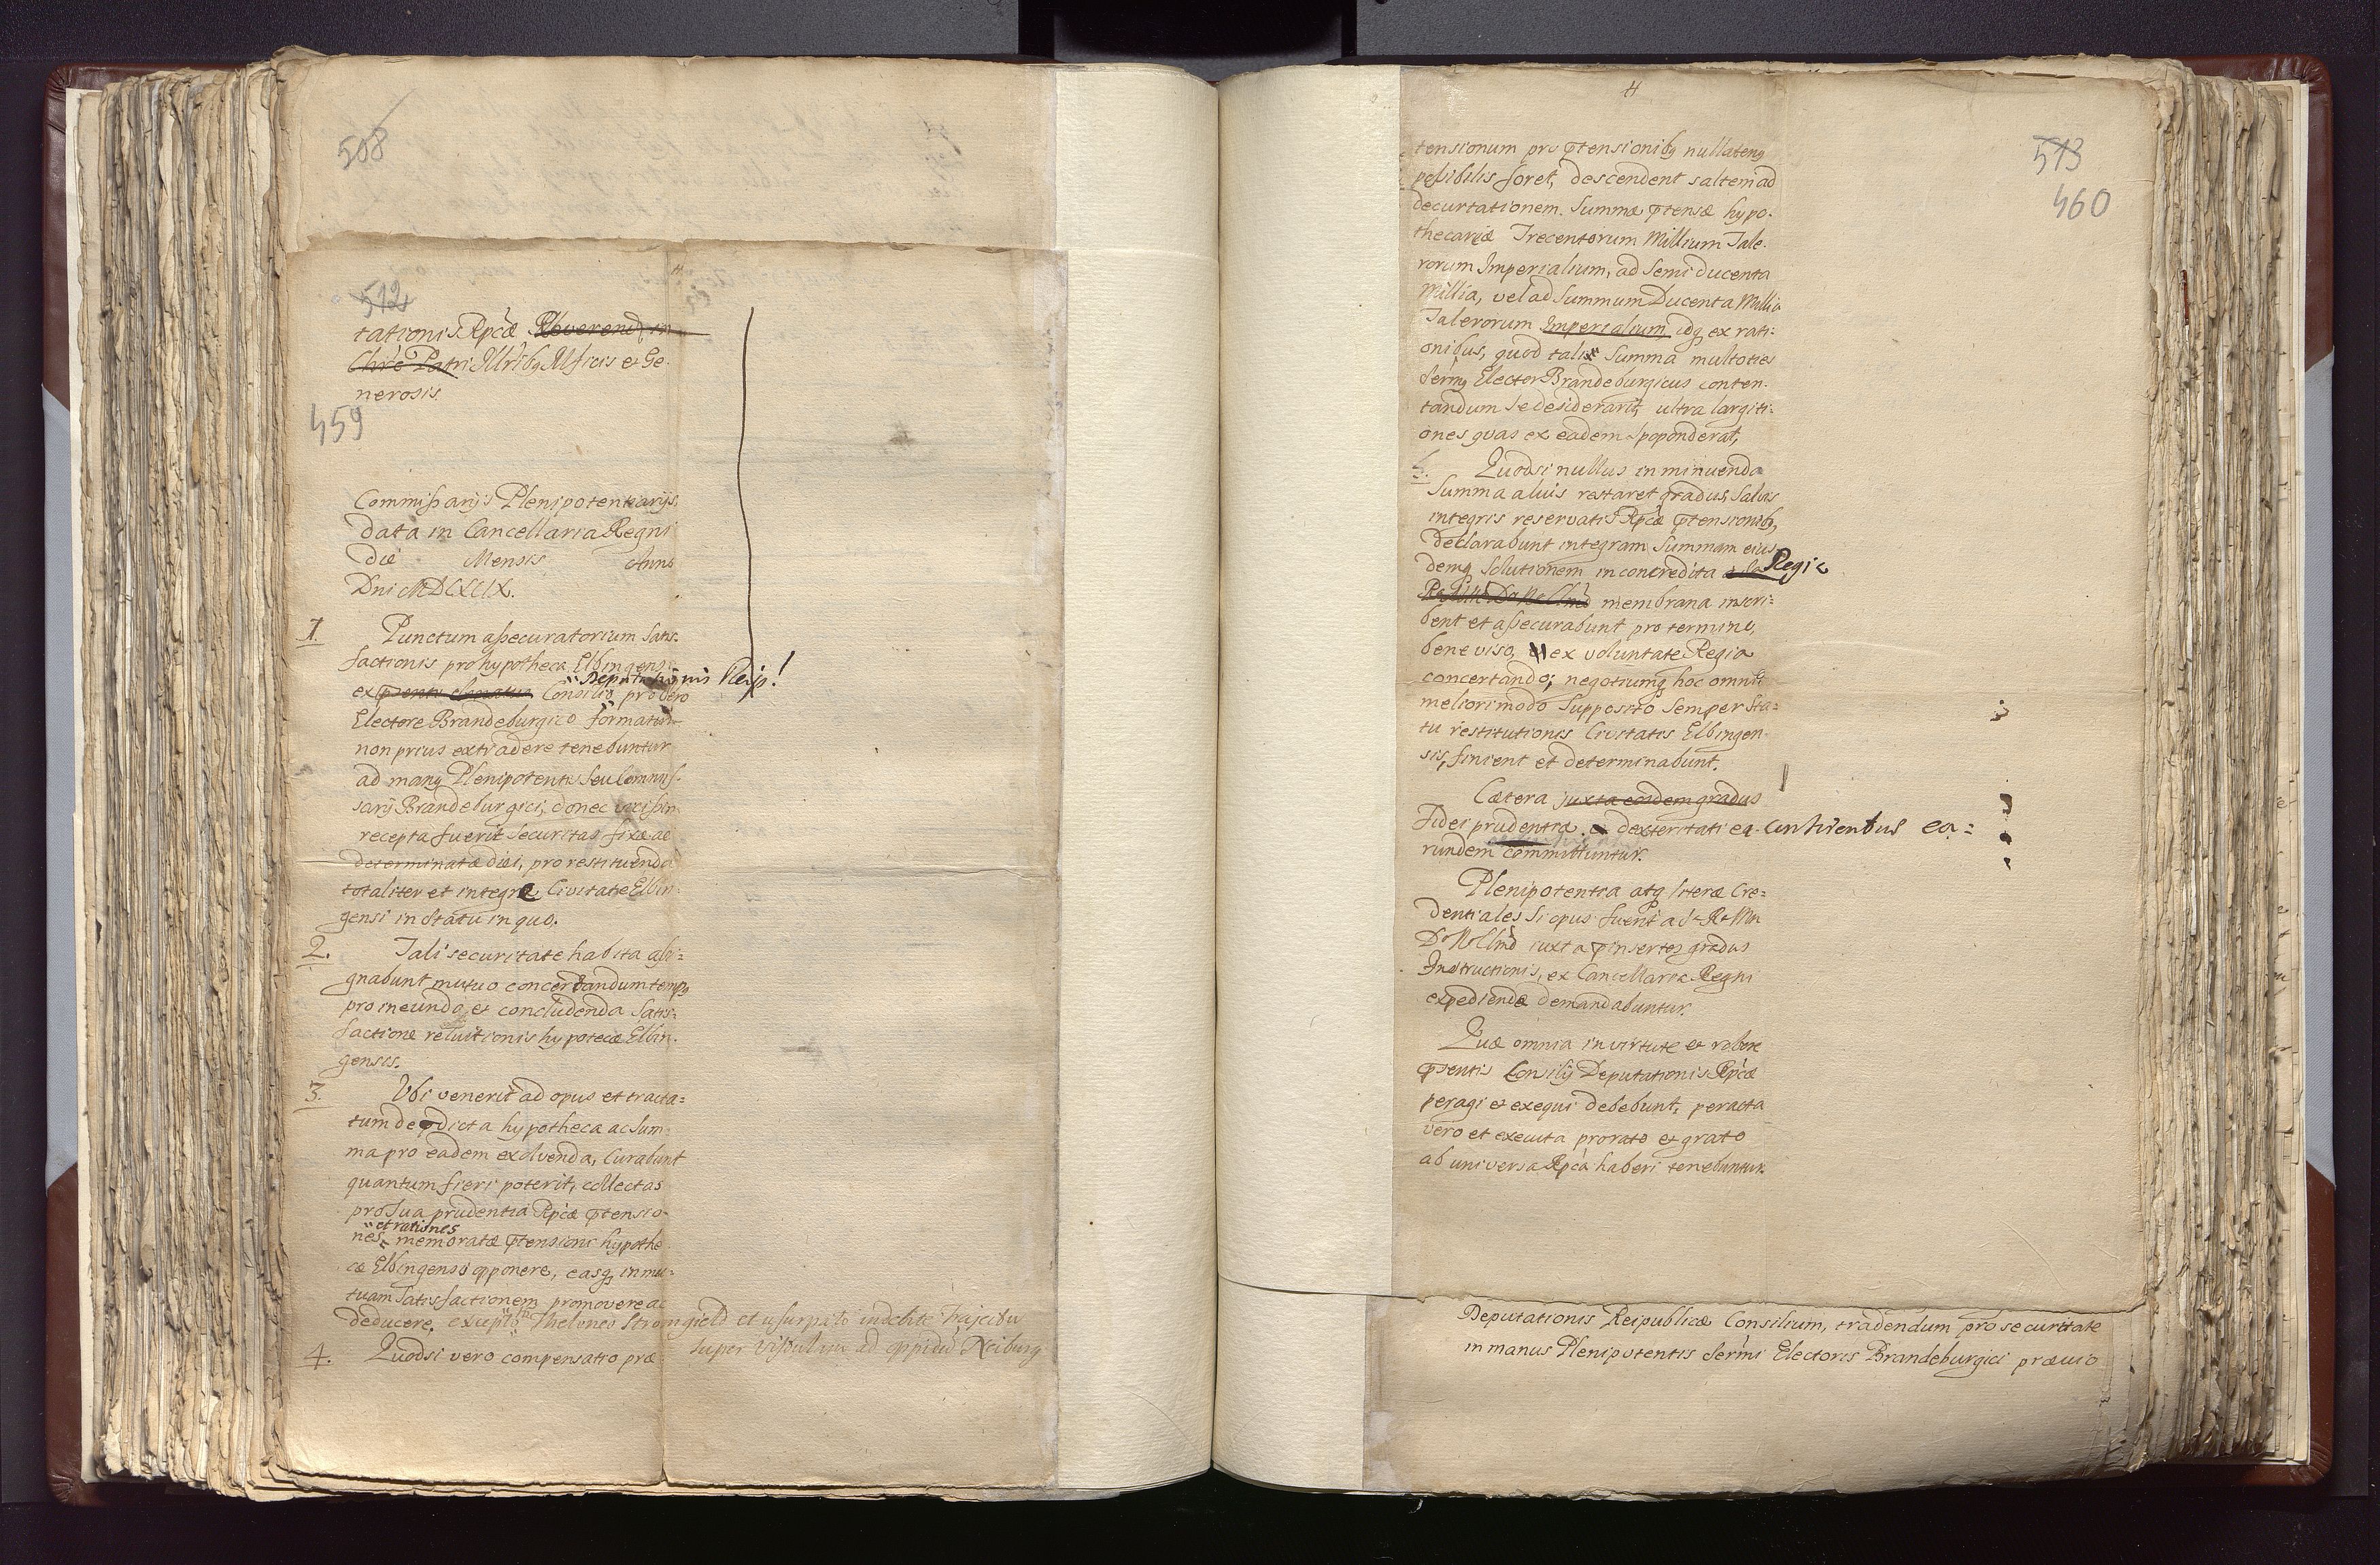 508
512
tationis Rpcæ Reverend in
Chro Patri Illribq Mficis et Ge-
nerosis.
459
Commissarijs Plenipotentiarijs,
data in Cancellaria Regni
die Mensis Anno
Dni MDCXCIX.
1. Punctum assecuratorium Satis-
factionis pro hypotheca Elbingensi
Deputationis Reip!
ex Consilio pro Sero
Electore Brandeburgico formatum
non prius extradere tenebuntur
ad manq Plenipotentis seu Commis-
sarij Brandeburgici, donec vicissim
recepta fuerit securitas fixæ ac
determinatæ diei, pro restituenda
totaliter et integre Civitate Elbin-
gensi in statu in quo.
2. Tali securitate habita assi-
gnabunt mutuo concertandum tempq
pro ineunda et concludenda Satis-
factione reluitionis hypotecæ Elbin-
gensis.
3. Ubi venerit ad opus et tracta-
tum de pdicta hypotheca ac Sum-
ma pro eadem exolvenda, Curabunt
quantum fieri poterit, collectas
pro sua prudentia Rpcæ ptensio-
et rationes
nes memoratæ ptensioni hypothe
cæ Elbingensi opponere, easq in mu-
tuam Satisfactionem promovere ac
deducere, excepto Theloneo Stromgield et usurpato indebite trajectu
super Vistulam ad oppidũ Neiburg
4. Quodsi vero compensatio præ-
H
513
460
tensionum pro ptensionibq nullatenq
possibilis foret, descendent saltem ad
decurtationem Summæ ptensæ hypo-
thecariæ Trecentorum Millium Tale-
rorum Imperialium, ad Semiducenta
Millia, vel ad Summum Ducenta Millia
Talerorum Imperialium idq ex rati-
onibus, quod tali Summa multoties
Sermq Elector Brandeburgicus conten-
tandum se desiderarit, ultra largiti-
ones quas ex eadem spoponderat,
5. Quodsi nullus in minuenda
Summa alius restaret gradus, Salvis
integris reservatis Rpcæ ptensionibq,
declarabunt integram Summam eius-
demq Solutionem in concredita Regia
membrana inscri-
bent et assecurabunt pro termino,
bene viso, ex voluntate Regia
concertando; negotiumq hoc omni
meliori modo supposito semper sta-
tu restitutionis Civitatis Elbingen-
sis, finient et determinabunt.
Cætera juxta eosdem gradus
Fidei prudentiæ dexteritati ea- Contirentbus ea=
rundem committuntur.
Plenipotentia atq literæ Cre-
dentiales si opus fuerit a S R Mte
Dno Nro Clmo iuxta pinsertos gradus
Instructionis, ex Cancellaria Regni
expediendæ demandabuntur.
Quæ omnia in virtute et robore
psentis Consilij Deputationis Rpcæ
peragi et exequi debebunt, peracta
vero et executa pro rato et grato
ab universa Rpca haberi tenebuntur.
Deputationis Reipublicæ Consilium, tradendum pro securitate
in manus Plenipotentis Sermi Electoris Brandeburgici prævio